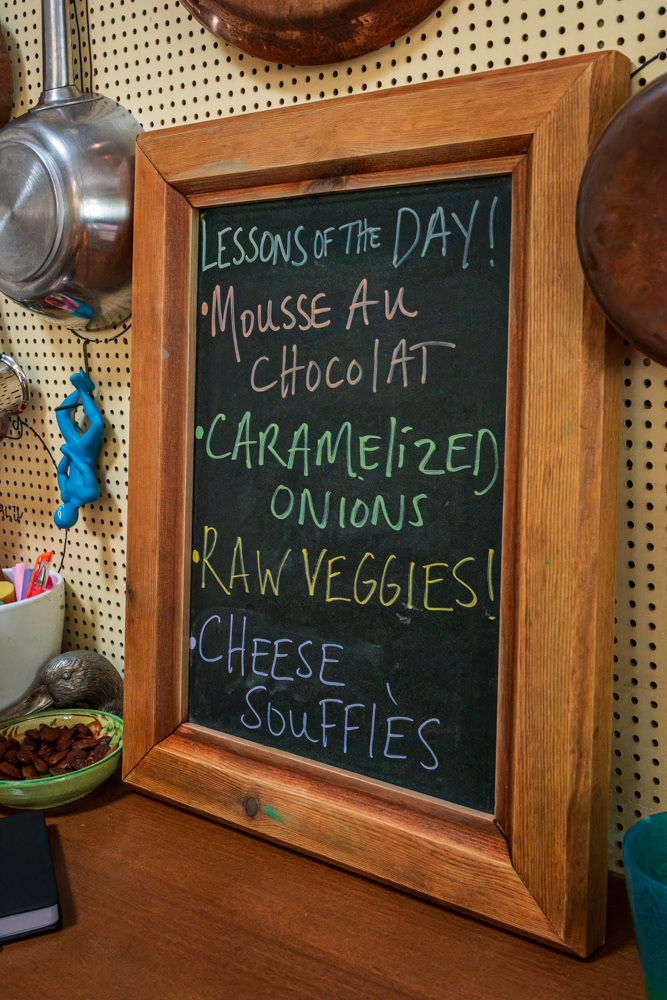 LESSONS OF THE DAY!
• MOUSSE AU
CHOCOLAT
• CARAMELIZED
ONIONS
• RAW VEGGIES!
• CHEESE
SOUFFLÈS